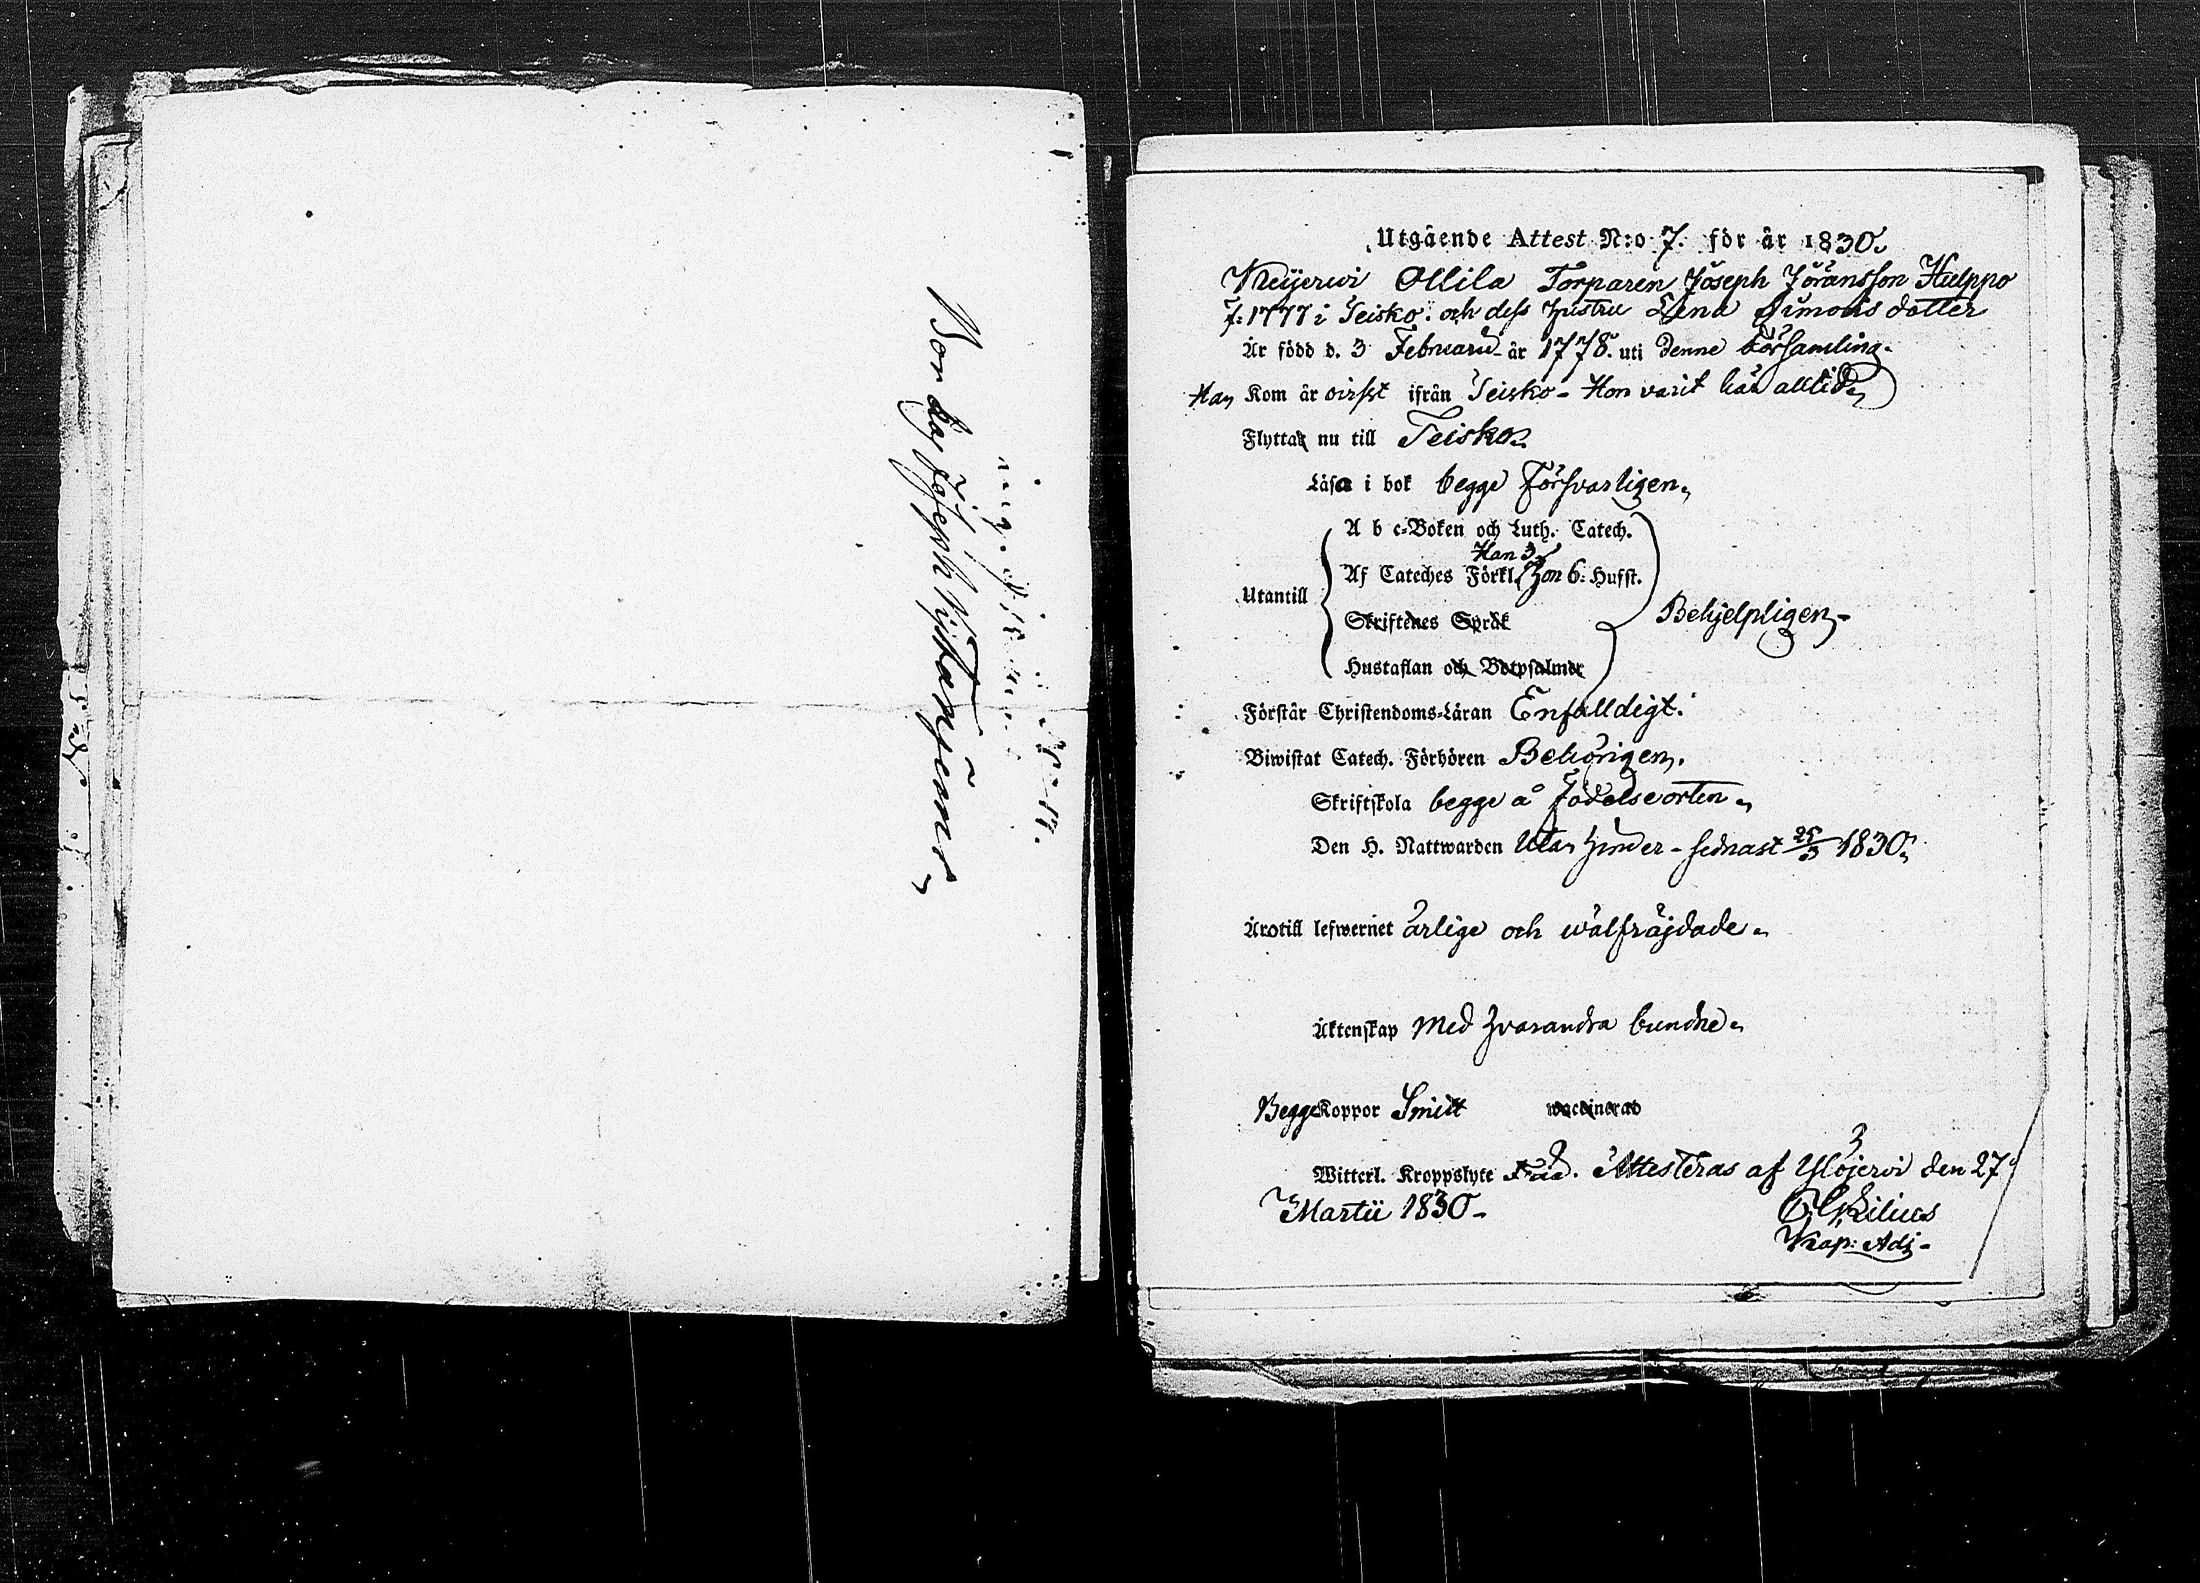 Bonden Joseph
Utgående Attest N:o 7. för år 1830.
Keijerwi Ollila Torparen Joseph Jöransson Hulppo
f: 1777 i Teisko. och dess hustru Lena Simonsdotter
År född d. 3 Februarii år 1778. uti denne Församling.
Han Kom år ovisst ifrån Teisko - Hon varit här alltid
Flytta nu till Teisko
Läsa i bok begge Försvarligen
A b c-Boken och Luth. Catech.
Han 3
Af Cateches Förkl. hon 6: Hufst.
Utantill
Skriftenes Språk
Behjelpligen
Hustaflan och Botpsalmer
Förstår Christendoms-Läran Enfalldigt.
Biwistat Catech. Förhören Behörigen.
Skriftskola begge å födelseorten
Den H. Nattwarden Utan hinder - sednast 25/3 1830.
Äro till lefwernet ärlige och wälfräjdade
Äktenskap med hvarandra bundne
Begge Koppor Smitt waccinerad
Witterl. Kroppslyte Fria. Attesteras af Ylöjerwi den 27
Martii 1830 -
Kap: Adj -